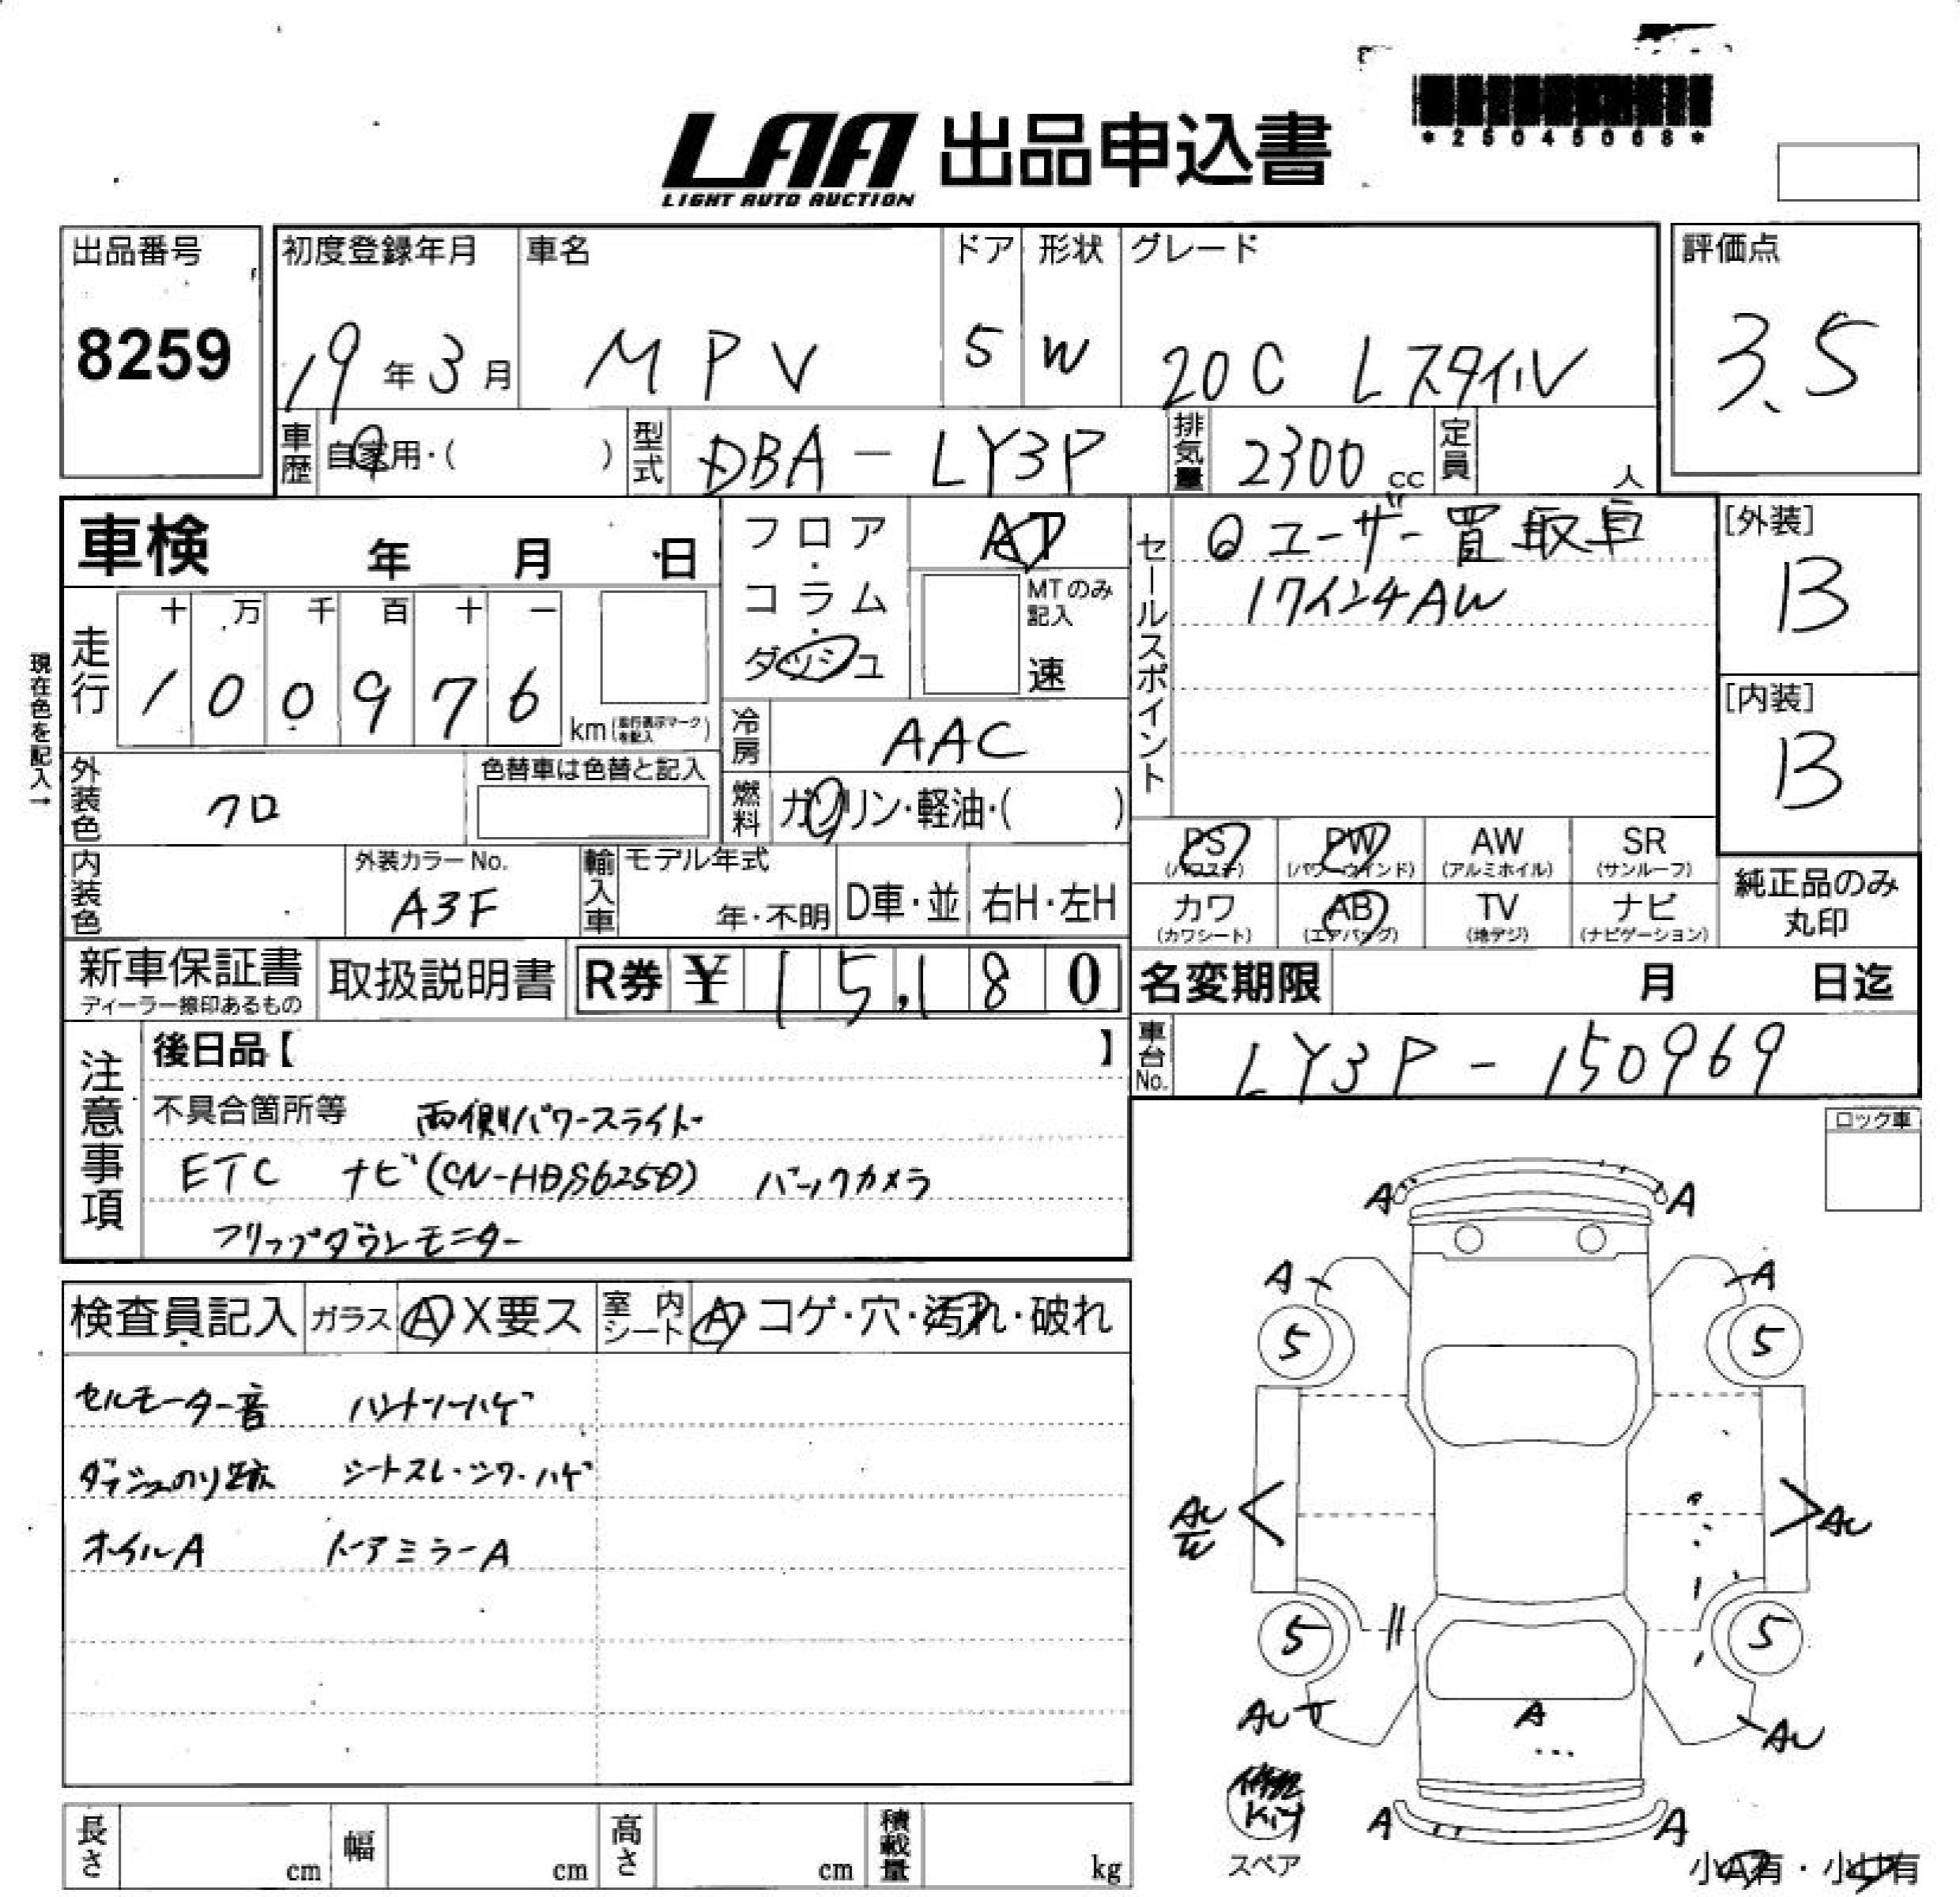 *25045068*
LAA 出品申込書
LIGHT AUTO AUCTION
出品番号
8259
初度登録年月
19年3月
車名
MPV
ドア
5
形状
W
グレード
20C Lスタイル
評価点
3.5
車歴 自家用・( )
型式 DBA-LY3P
排気量 2300 cc
定員 人
車検 年 月 日
フロア・コラム・ダッシュ
AT
MTのみ記入
速
セールスポイント
◎ユーザー買取車
17インチAW
[外装]
B
[内装]
B
現在色を記入→
走行
十 万 千 百 十 一
1 0 0 9 7 6
km(走行表示マークを記入)
冷房 AAC
外装色 クロ
色替車は色替と記入
燃料 ガソリン・軽油・( )
PS (パワステ)
PW (パワーウインド)
AW (アルミホイル)
SR (サンルーフ)
カワ (カワシート)
AB (エアバッグ)
TV (地デジ)
ナビ (ナビゲーション)
純正品のみ丸印
内装色
外装カラーNo.
A3F
輸入車
モデル年式
年・不明
D車・並
右H・左H
新車保証書
ディーラー捺印あるもの
取扱説明書
R券 ¥ 15,180
名変期限 月 日迄
車台No. LY3P-150969
注意事項
後日品【 】
不具合箇所等 両側パワースライドー
ETC ナビ バックカメラ
フリップダウンモニター
ロック車
検査員記入
ガラス A X要ス
室内シート A コゲ・穴・汚れ・破れ
セルモーター音 ハンドルハゲ
ダッシュのり跡 シートスレ・シワ・ハゲ
ホイルA ドアミラーA
A A
A A
5 5
AU AU
5 5
AU AU
A
A A
修理Kit
スペア
小A有・小U有
長さ cm
幅 cm
高さ cm
積載量 kg